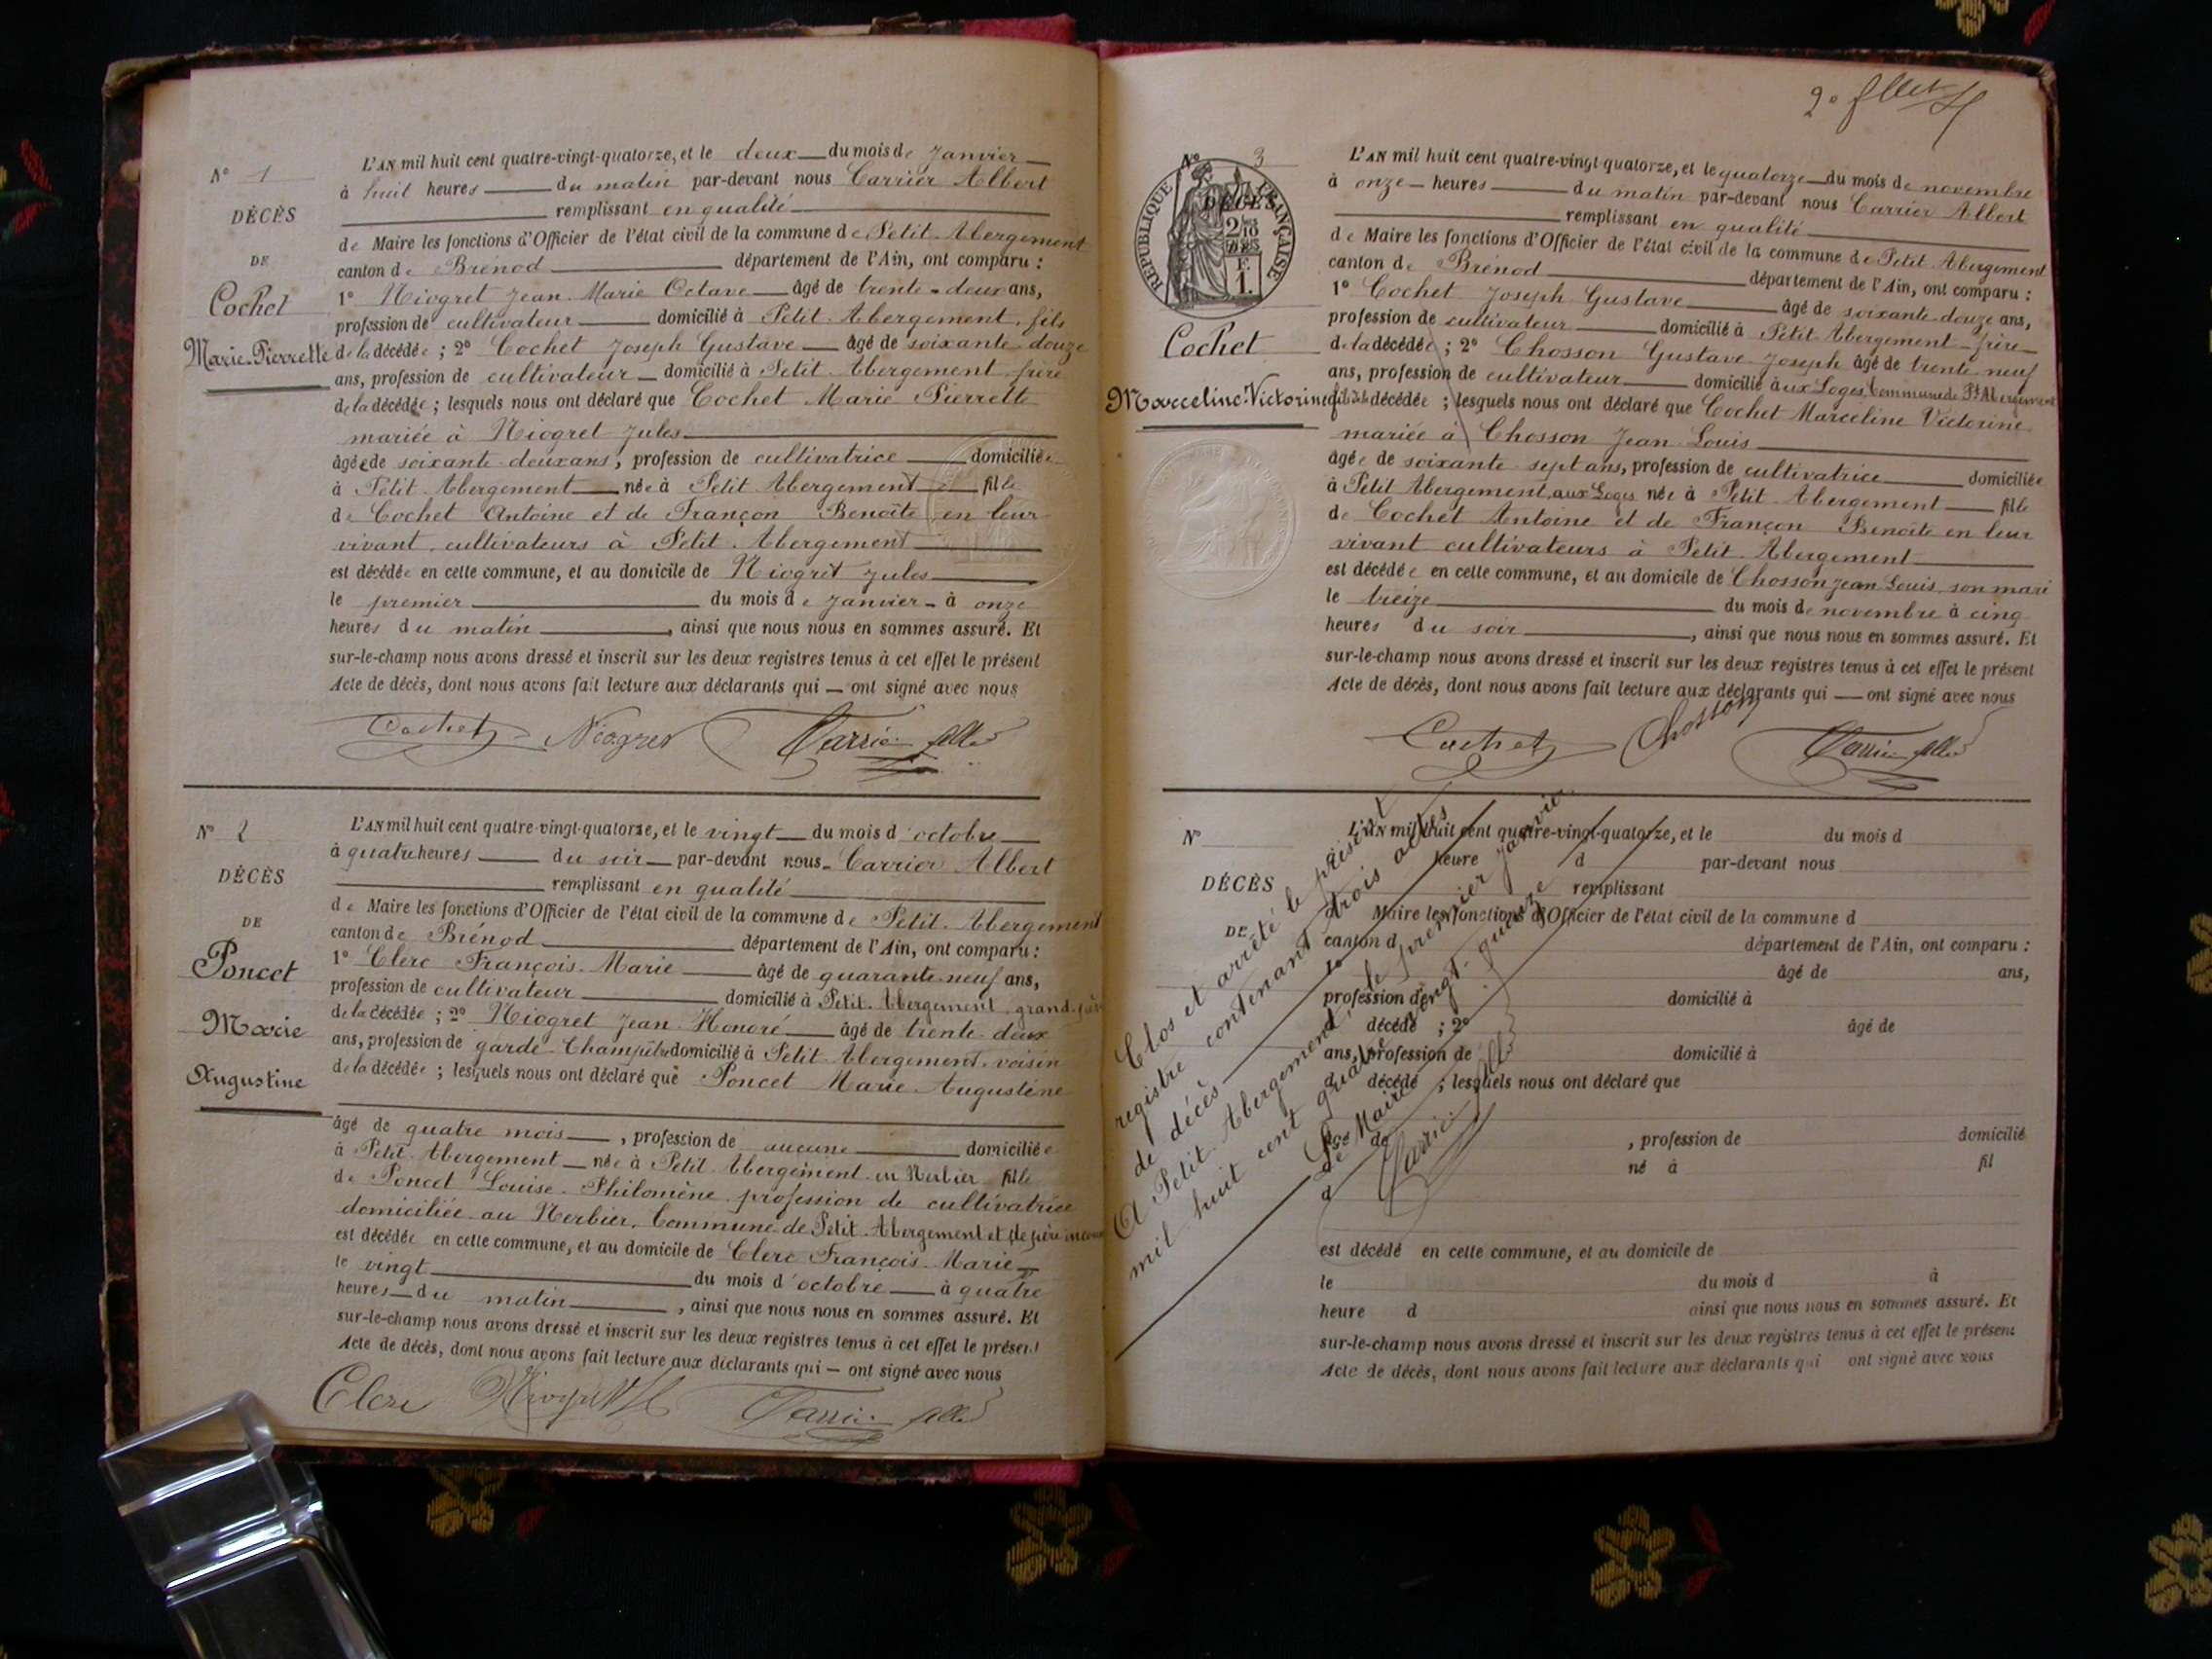 N° 1
DÉCÈS
DE
Cochet
Marie-Pierrette
L'AN mil huit cent quatre-vingt-quatorze, et le deux du mois de Janvier
à huit heures du matin par-devant nous Carrier Albert
remplissant en qualité
de Maire les fonctions d'Officier de l'état civil de la commune de Petit-Abergement
canton de Brénod département de l'Ain, ont comparu :
1° Niogret Jean-Marie Octave âgé de trente-deux ans,
profession de cultivateur domicilié à Petit-Abergement, fils
de la décédée ; 2° Cochet Joseph Gustave âgé de soixante-douze
ans, profession de cultivateur domicilié à Petit-Abergement frère
de la décédée ; lesquels nous ont déclaré que Cochet Marie Pierrette
mariée à Niogret Jules
âgée de soixante-deux ans, profession de cultivatrice domiciliée
à Petit-Abergement née à Petit-Abergement fille
de Cochet Antoine et de Françon Benoîte en leur
vivant, cultivateurs à Petit-Abergement
est décédée en cette commune, et au domicile de Niogret Jules
le premier du mois de Janvier à onze
heures du matin, ainsi que nous nous en sommes assuré. Et
sur-le-champ nous avons dressé et inscrit sur les deux registres tenus à cet effet le présent
Acte de décès, dont nous avons fait lecture aux déclarants qui — ont signé avec nous
Cochet Niogret Carrier Albert
N° 2
DÉCÈS
DE
Poncet
Marie
Augustine
L'AN mil huit cent quatre-vingt-quatorze, et le vingt du mois d'octobre
à quatre heures du soir par-devant nous Carrier Albert
remplissant en qualité
de Maire les fonctions d'Officier de l'état civil de la commune de Petit-Abergement
canton de Brénod département de l'Ain, ont comparu :
1° Clerc François-Marie âgé de quarante-neuf ans,
profession de cultivateur domicilié à Petit-Abergement, grand-père
de la décédée ; 2° Niogret Jean-Honoré âgé de trente-deux
ans, profession de garde-Champêtre domicilié à Petit-Abergement, voisin
de la décédée ; lesquels nous ont déclaré que Poncet Marie Augustine
âgé de quatre mois, profession de aucune domiciliée
à Petit-Abergement née à Petit-Abergement fille
de Poncet Louise-Philomène profession de cultivatrice
domiciliée au Nerbier, Commune de Petit-Abergement et de père inconnu
est décédée en cette commune, et au domicile de Clerc François-Marie
le vingt du mois d'octobre à quatre
heures du matin, ainsi que nous nous en sommes assuré. Et
sur-le-champ nous avons dressé et inscrit sur les deux registres tenus à cet effet le présent
Acte de décès, dont nous avons fait lecture aux déclarants qui — ont signé avec nous
Clerc Niogret Carrier Albert
N° 3
RÉPUBLIQUE FRANÇAISE
DÉCÈS
Cochet
Marceline-Victorine
L'AN mil huit cent quatre-vingt-quatorze, et le quatorze du mois de novembre
à onze heures du matin par-devant nous Carrier Albert
remplissant en qualité
de Maire les fonctions d'Officier de l'état civil de la commune de Petit-Abergement
canton de Brénod département de l'Ain, ont comparu :
1° Cochet Joseph Gustave âgé de soixante-douze ans,
profession de cultivateur domicilié à Petit-Abergement frère
de la décédée ; 2° Chosson Gustave Joseph âgé de trente-neuf
ans, profession de cultivateur domicilié aux Loges, Commune de Pt Abergement
fils de la décédée ; lesquels nous ont déclaré que Cochet Marceline Victorine
mariée à Chosson Jean Louis
âgée de soixante-sept ans, profession de cultivatrice domiciliée
à Petit Abergement, aux Loges née à Petit Abergement fille
de Cochet Antoine et de Françon Benoîte en leur
vivant cultivateurs à Petit-Abergement
est décédée en cette commune, et au domicile de Chosson Jean Louis, son mari
le treize du mois de novembre à cinq
heures du soir, ainsi que nous nous en sommes assuré. Et
sur-le-champ nous avons dressé et inscrit sur les deux registres tenus à cet effet le présent
Acte de décès, dont nous avons fait lecture aux déclarants qui — ont signé avec nous
Cochet Chosson Carrier Albert
N°
DÉCÈS
DE
L'AN mil huit cent quatre-vingt-quatorze, et le du mois d
heure d par-devant nous
remplissant
d Maire les fonctions d'Officier de l'état civil de la commune d
canton d département de l'Ain, ont comparu :
1° âgé de ans,
profession de domicilié à
d décédé ; 2° âgé de
ans, profession de domicilié à
d décédé ; lesquels nous ont déclaré que
âgé de , profession de domicilié
à né à fil
d
est décédé en cette commune, et au domicile de
le du mois d à
heure d ainsi que nous nous en sommes assuré. Et
sur-le-champ nous avons dressé et inscrit sur les deux registres tenus à cet effet le présent
Acte de décès, dont nous avons fait lecture aux déclarants qui ont signé avec nous
Clos et arrêté le présent
registre contenant trois actes
de décès
A Petit-Abergement, le premier Janvier
mil huit cent quatre vingt-quinze
Le Maire
Carrier Albert